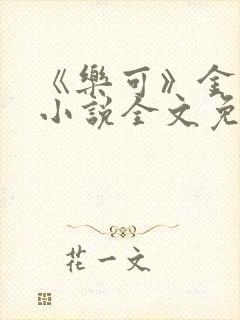 《樂可》金
小說全文免
花一文